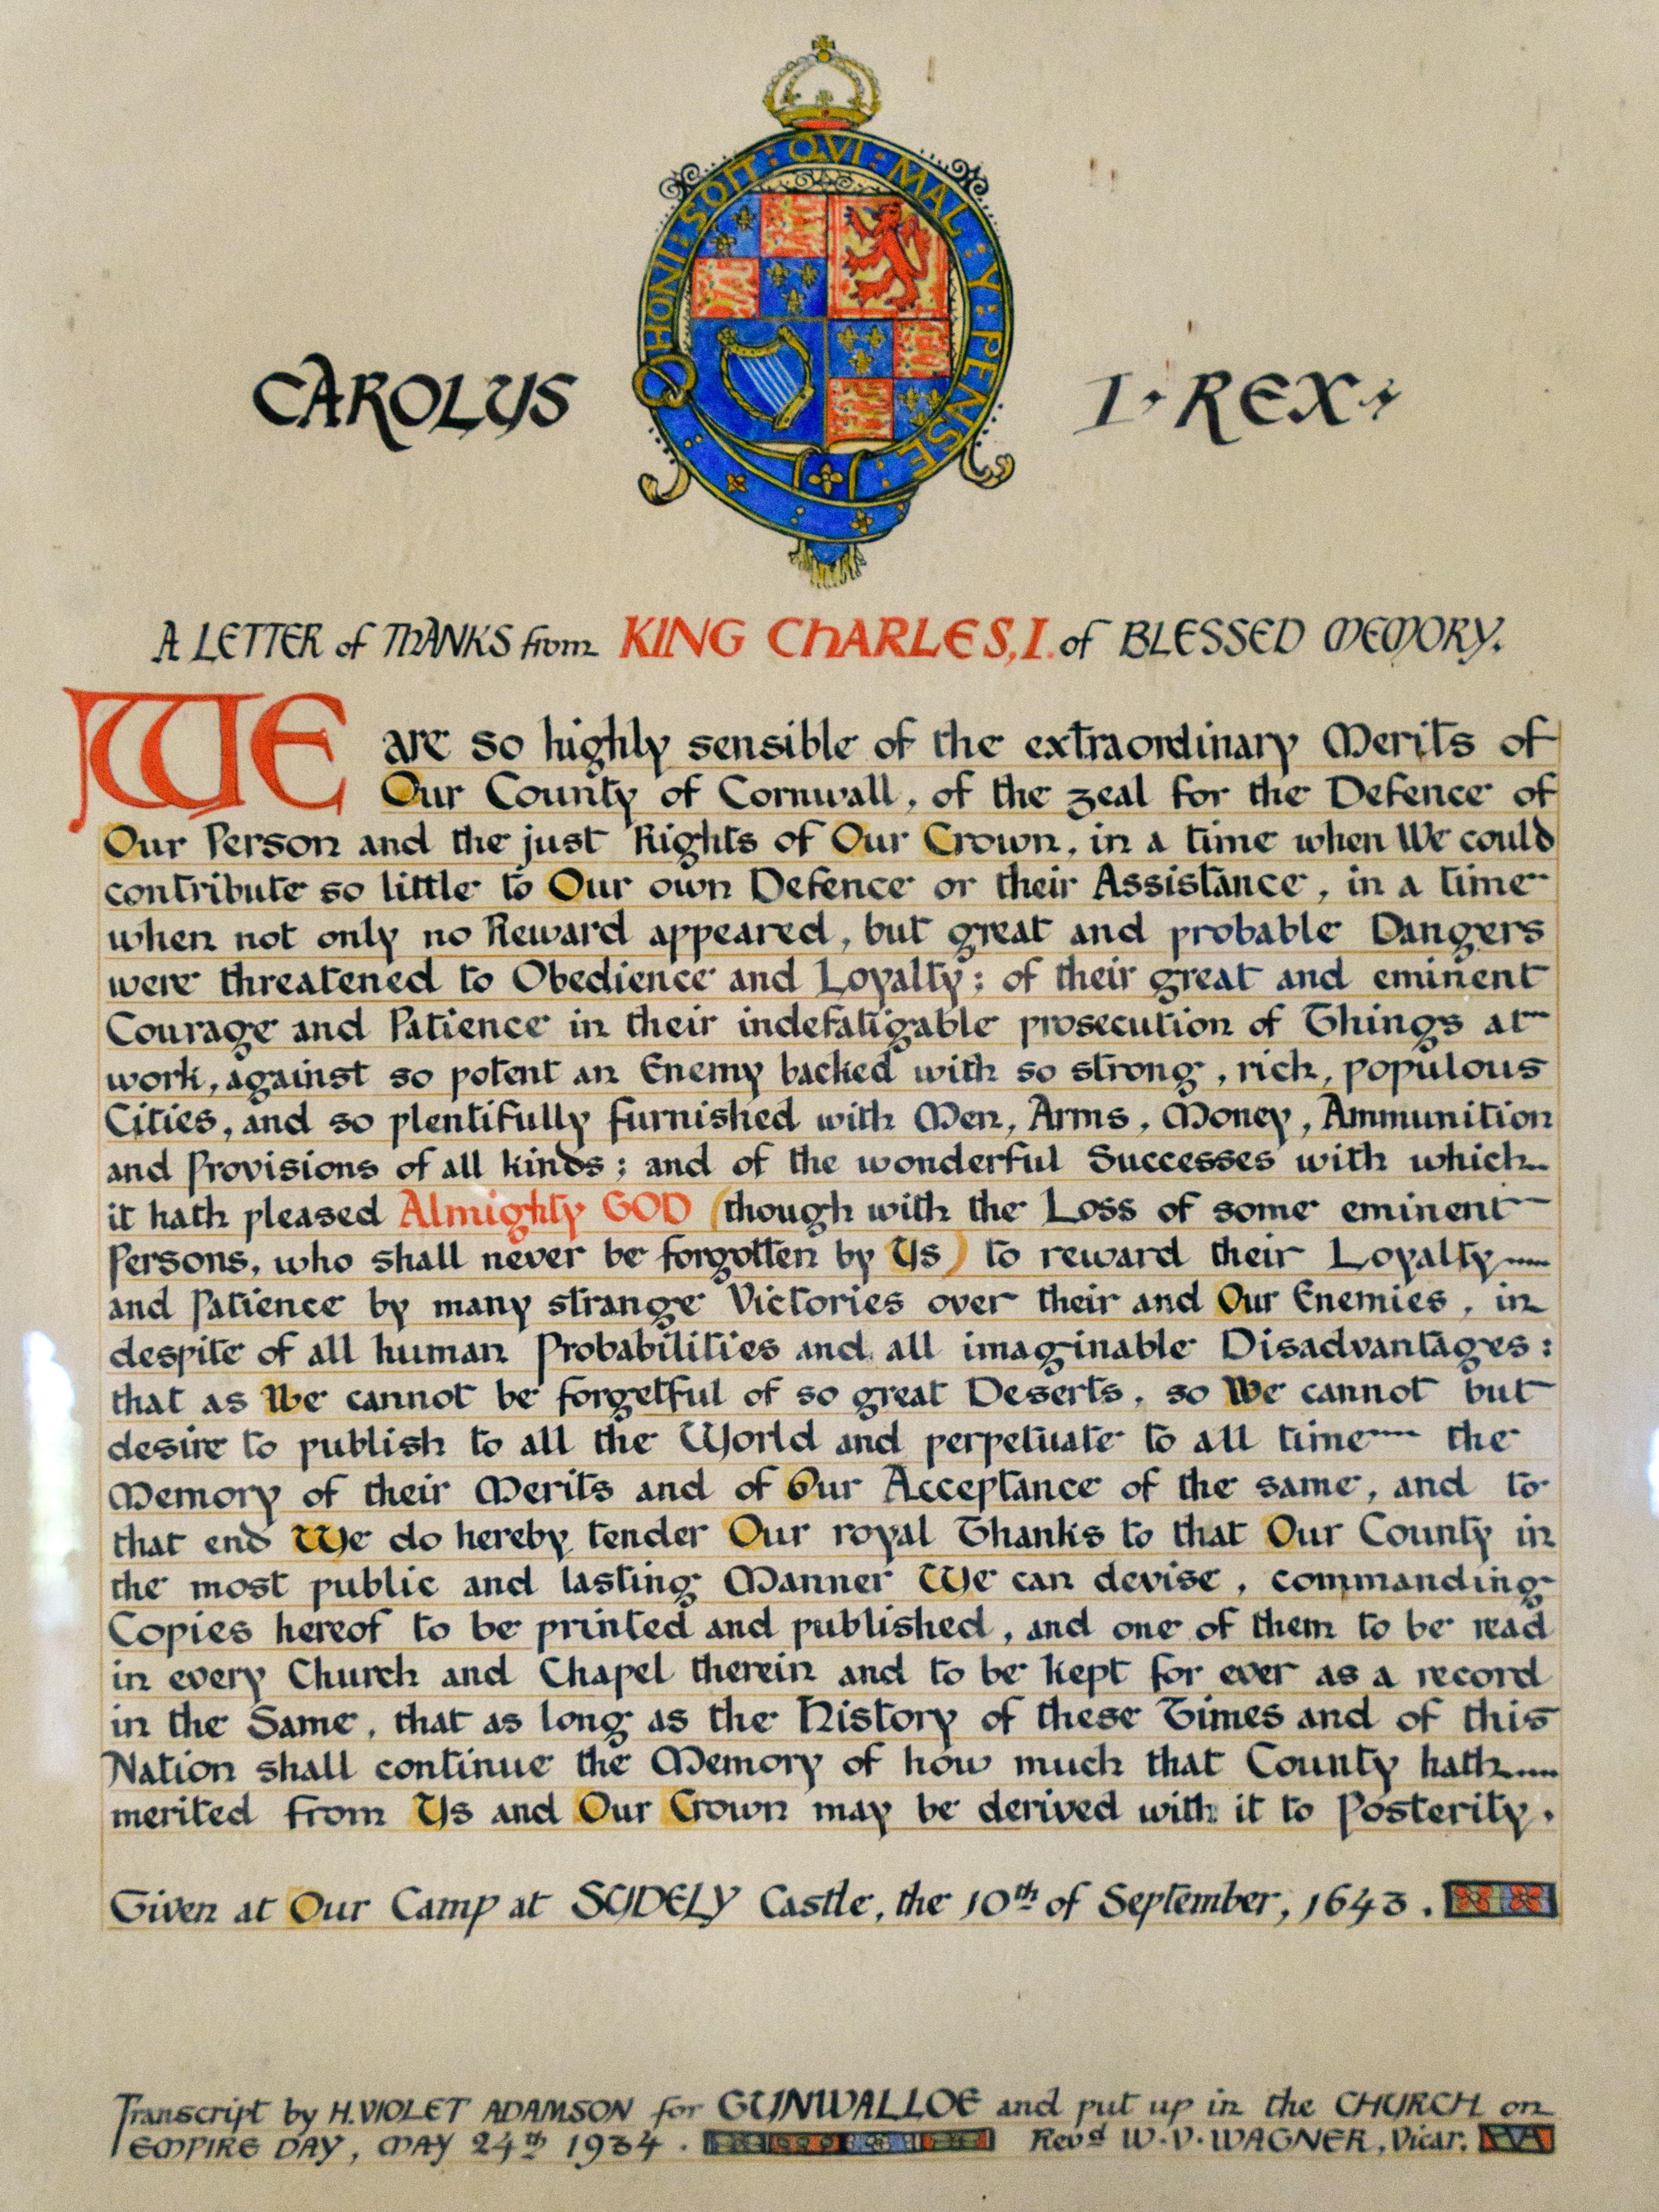 HONI : SOIT : QVI : MAL : Y : PENSE :
CAROLUS I · REX ·
A LETTER of THANKS from KING CHARLES, I. of BLESSED MEMORY.
WE are so highly sensible of the extraordinary Merits of
Our County of Cornwall, of the zeal for the Defence of
Our Person and the just Rights of Our Crown, in a time when We could
contribute so little to Our own Defence or their Assistance, in a time
when not only no Reward appeared, but great and probable Dangers
were threatened to Obedience and Loyalty; of their great and eminent
Courage and Patience in their indefatigable prosecution of Things at
work, against so potent an Enemy backed with so strong, rich, populous
Cities, and so plentifully furnished with Men, Arms, Money, Ammunition
and Provisions of all kinds; and of the wonderful Successes with which
it hath pleased Almighty GOD (though with the Loss of some eminent
Persons, who shall never be forgotten by Us) to reward their Loyalty
and Patience by many strange Victories over their and Our Enemies, in
despite of all human Probabilities and all imaginable Disadvantages:
that as We cannot be forgetful of so great Deserts, so We cannot but
desire to publish to all the World and perpetuate to all time the
Memory of their Merits and of Our Acceptance of the same, and to
that end We do hereby tender Our royal Thanks to that Our County in
the most public and lasting Manner We can devise, commanding
Copies hereof to be printed and published, and one of them to be read
in every Church and Chapel therein and to be kept for ever as a record
in the Same, that as long as the History of these Times and of this
Nation shall continue the Memory of how much that County hath
merited from Us and Our Crown may be derived with it to Posterity.
Given at Our Camp at SUDELY Castle, the 10th of September, 1643.
Transcript by H. VIOLET ADAMSON for GUNWALLOE and put up in the CHURCH on
EMPIRE DAY, MAY 24th 1934. Revd W. V. WAGNER, Vicar.